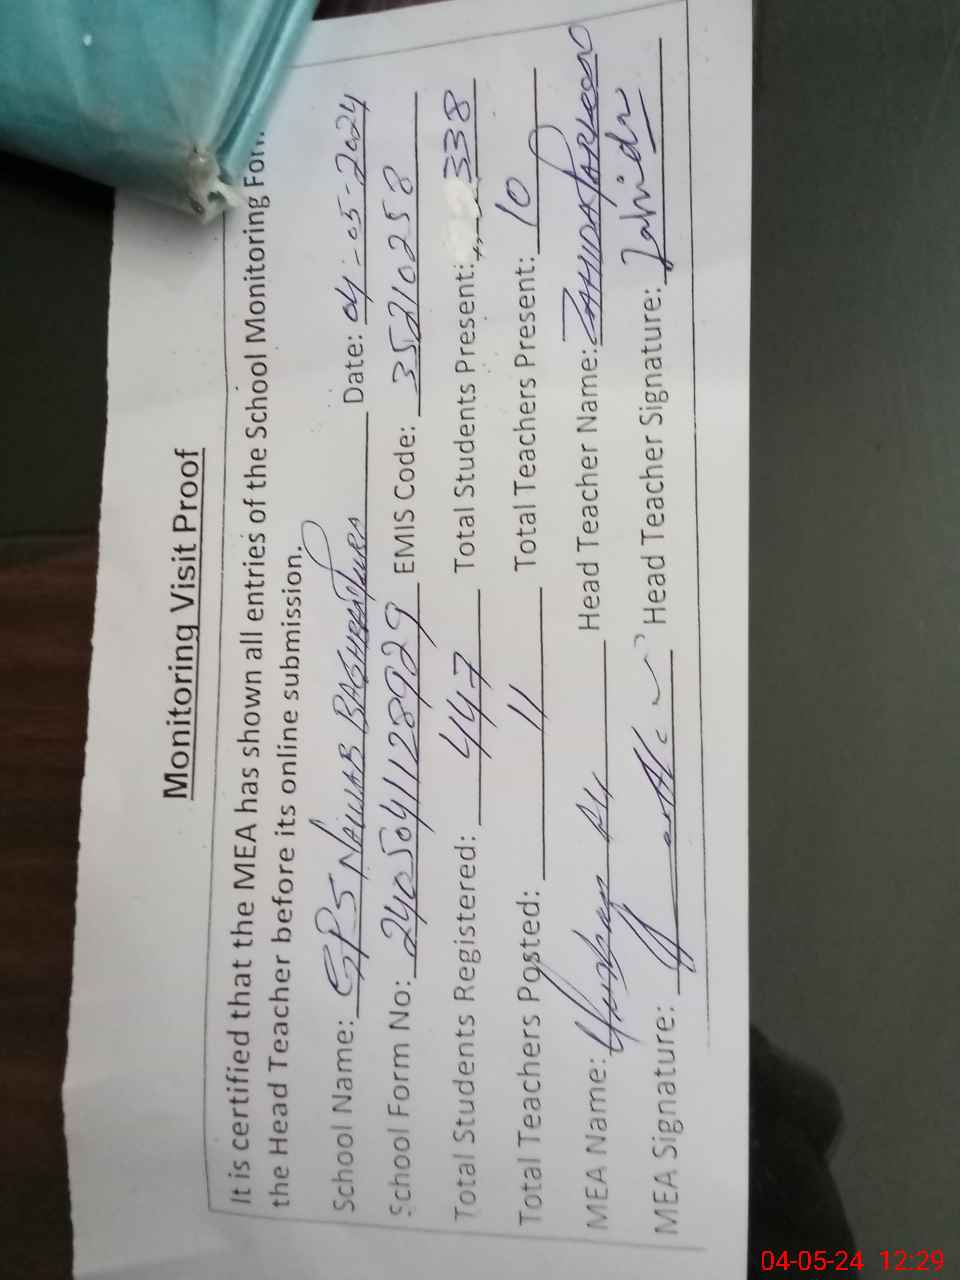 Monitoring Visit Proof
It is certified that the MEA has shown all entries of the School Monitoring For
the Head Teacher before its online submission.
School Name: GPS NAWAB Date: 04-05-2024
School Form No: 2405041128929 EMIS Code: 35210258
Total Students Registered: 447 Total Students Present: 338
Total Teachers Posted: 11 Total Teachers Present: 10
MEA Name: Head Teacher Name: ZAHIDA PARVEEN
MEA Signature: Head Teacher Signature: Zahida
04-05-24 12:29